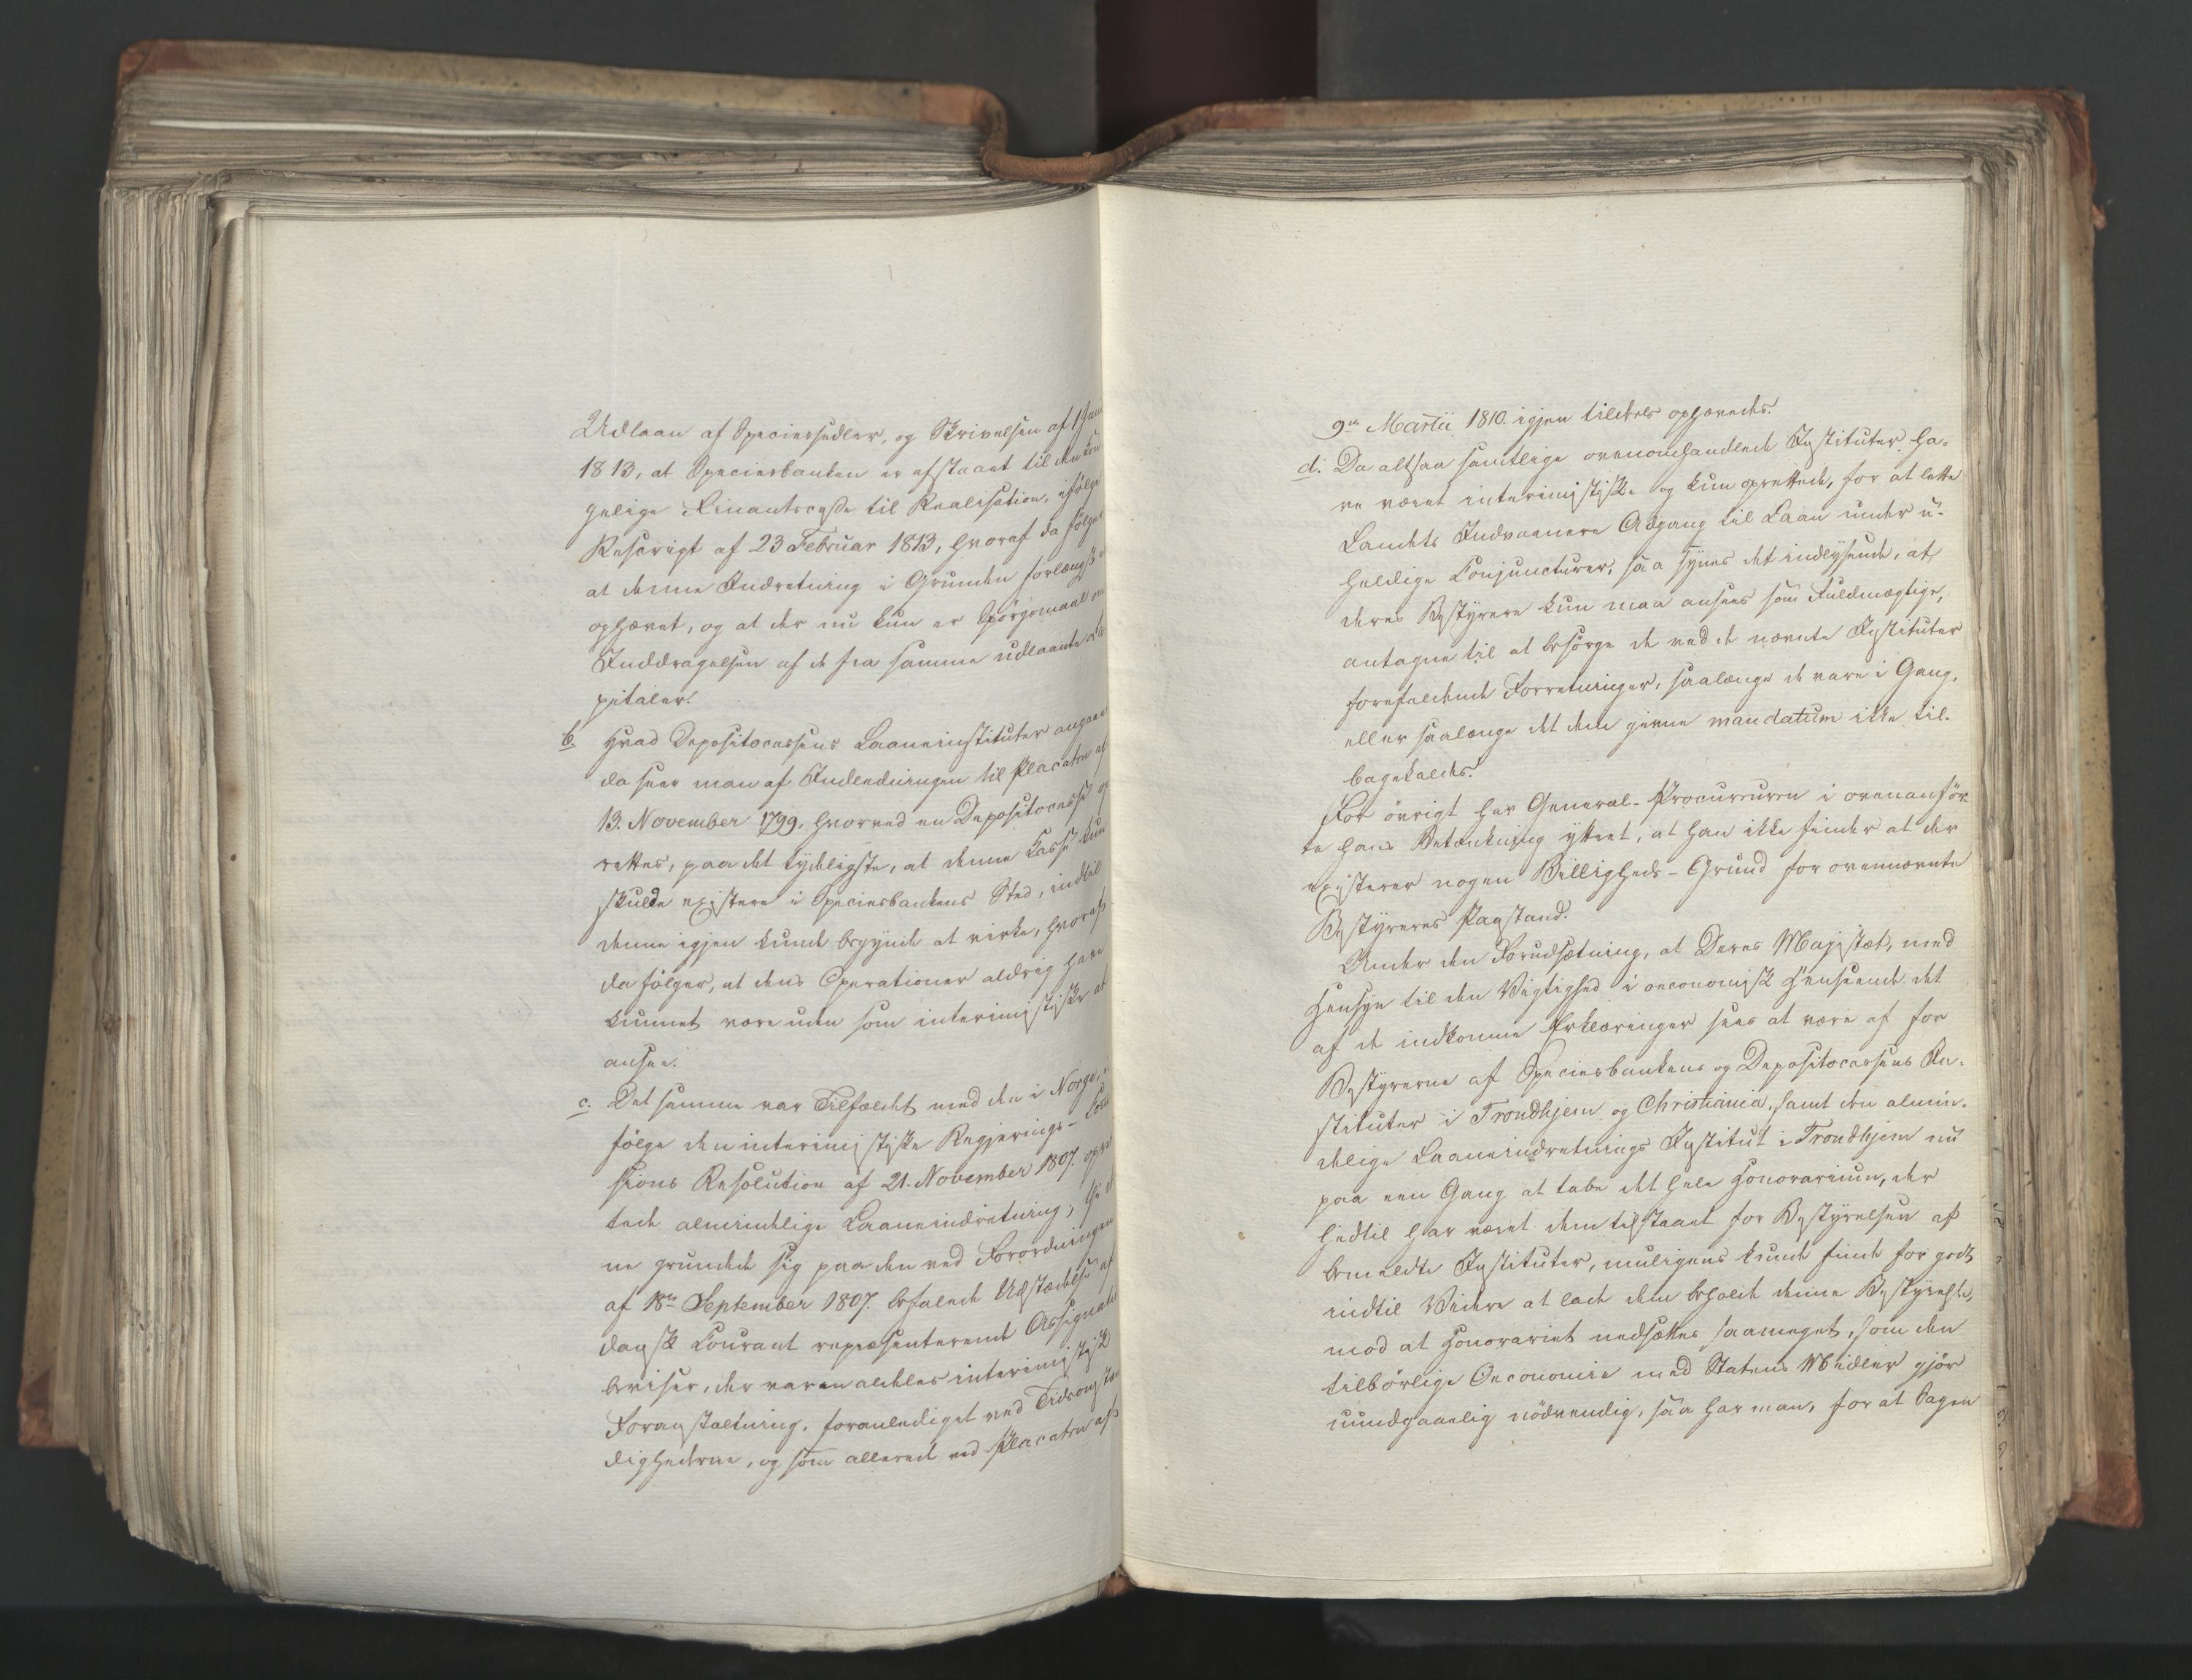 Udlaan af Speciessedler, og Skrivelsen af 1 Juni
1813, at Speciesbanken er afstaaet til den kon
gelige Finantscasse til Realisation, ifølge
Rescript af 23 Februar 1813, hvoraf da følger
at denne Indretning i Grunden forlængst
ophævet, og at der nu kun er Spörgsmaal om
Inddragelsen af de fra samme udlaante Ca
pitaler.
b. Hvad Depositocassens Laaneinstituter angaaer
da seer man af Indledningen til Placaten af
13. November 1799, hvorved en Depositocasse op
rettes, paa det tydeligste, at denne Casse kun
skulde existere i Speciesbankens Sted, indtil
denne igjen kunde begynde at virke, hvoraf
da fölger, at dens Operationer aldrig have
kunnet være uden som interimistiske at
ansee.
c. Det samme var Tilfældet med den i Norge, i
fölge den interimistiske Regjerings-Com
sions Resolution af 21. November 1807. opret
tede almindelige Laaneindretning, thi
ne grundede sig paa den ved Forordningen
af 18de September 1807. befalede Udstædelse af
dansk Courant repræsenterende Assignations
beviser, der var en aldeles interimistisk
Foranstaltning, foranlediget ved Tidsomstæn
dighederne, og som allerede ved Placaten af
9de Martii 1810. igjen tildeels ophævedes.
d. Da altsaa samtlige ovenomhandlede Instituter ha-
ve været interimistiske og kun oprettede, for at lette
Landets Indvaanere Adgang til Laan under u-
heldige Conjuncturer, saa synes det indlysende, at
deres Bestyrere kun maa ansees som Fuldmægtige,
antagne til at besörge de ved de nævnte Instituter
forefaldende Forretninger, saalænge de vare i Gang,
eller saalænge det dem givne mandatum ikke til-
bagekaldes.
For övrigt har General-Procureuren i ovenanför-
te hans Betænkning yttret, at han ikke finder at der
existerer nogen Billigheds-Grund for ovennævnte
Bestyreres Paastand.
Under den Forudsætning, at Deres Majestæt, med
Hensyn til den Vigtighed i oeconomisk Henseende det
af de indkomne Erklæringer sees at være af for
Bestyrerne af Speciesbankens og Depositocassens In-
stituter i Trondhjem og Christiania, samt den almin-
delige Laaneindretnings Institut i Trondhjem nu
paa een Gang at tabe det hele Honorarium, der
hidtil har været dem tilstaaet for Bestyrelsen af
bemeldte Instituter, muligens kunde finde for godt,
indtil Videre at lade dem beholde denne Bestyrelse,
mod at Honorariet nedsættes saameget, som den
tilbörlige Oeconomie med Statens Midler gjör
uundgaaelig nödvendig, saa har man, for at bagen